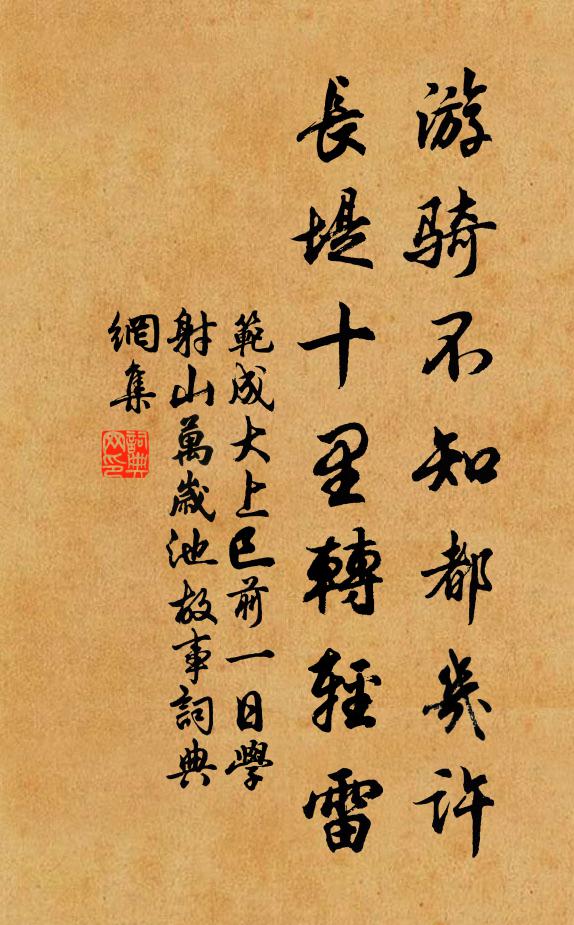 游骑不知都几许
長堤十里轉輕雷
範成大上巳前一日學
射山萬歲池故事詞典
網集
詞典
网印